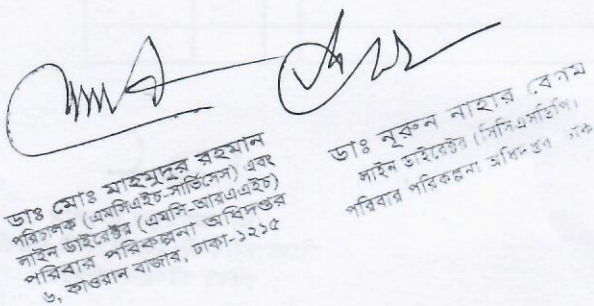 ডাঃ মোঃ মাহমুদুর রহমান
পরিচালক (এমসিএইচ-সার্ভিসেস) এবং
লাইন ডাইরেক্টর (এমসি-আরএএইচ)
পরিবার পরিকল্পনা অধিদপ্তর
৬, কাওরান বাজার, ঢাকা-১২১৫
ডাঃ নূরুন নাহার বেগম
লাইন ডাইরেক্টর (সিসিএসডিপি)
পরিবার পরিকল্পনা অধিদপ্তর